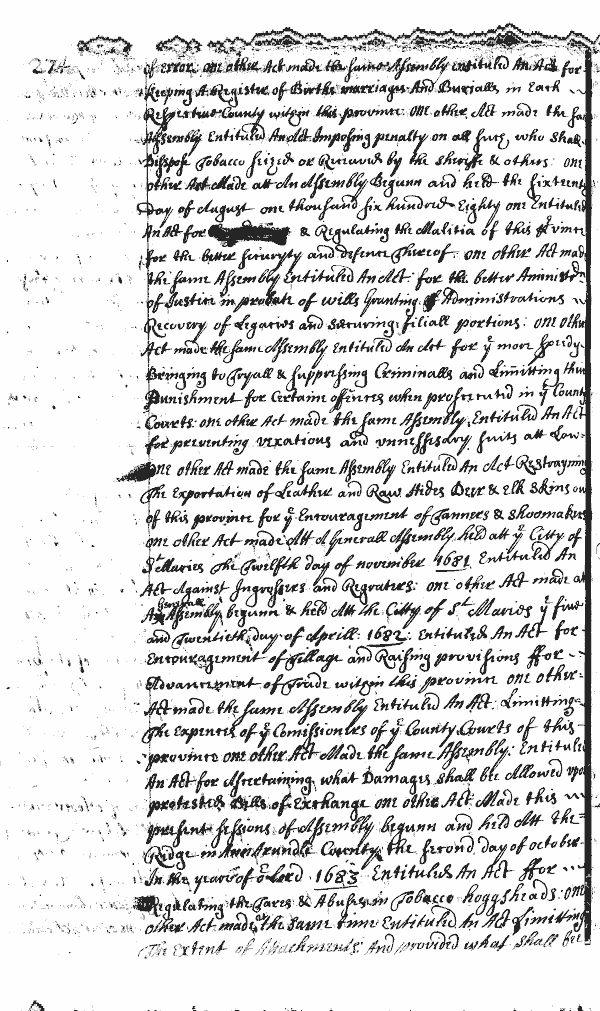 274
of Error: one other Act made the same Assembly entituled An Act for
keeping A Register of Births marriages And Burialls in Each
Respective County within this province: one other Act made the same
Assembly Entituled An Act Imposing penalty on all such who shall
Disspose Tobacco seized or Received by the sheriffe & others: one
other Act Made att An Assembly Begunn and held the sixteenth
day of August one thousand six hundred Eighty one Entituled
An Act for & Regulating the Malitia of this province
for the better securyty and defence thereof. one other Act made
the same Assembly Entituled An Act: for the better Administra
of Justice in probate of wills Granting of Administrations
Recovery of Legacies and securing filiall portions: one other
Act made the same Assembly Entituled An Act for ye more speedy
Bringing to Tryall & suppressing Criminalls and Limitting their
Punishment for Certaine offences when prosecuted in ye County
Courts: one other Act made the same Assembly, Entituled An Act
for preventing vexatious and unnessessary suits att Law-
One other Act made the same Assembly Entituled An Act Restrayning
The Exportation of Leather and Raw Hides Deer & Elk Skins out
of this province for ye Encouragement of Tanners & shoomakers
one other Act made Att A Generall Assembly, held att ye Citty of
St Maries The Twelfth day of november 1681 Entituled An
Act Against Ingrossers and Regraters: one other Act made at
An Generall Assembly begunn & held Att the Citty of St Maries ye five
and Twentieth day of Aprill: 1682: Entituled An Act for
Encouragement of Tillage and Raising provisions ffor
Advancement of Trade within this province one other
Act made the same Assembly Entituled An Act: Limitting
The Expences of ye Comissioners of ye County Courts of this
province one other Act Made the same Assembly: Entituled
An Act for Ascertaining what Damages shall be Allowed upon
protested Bills of Exchange one other Act Made this
present sessions of Assembly begunn and held Att the
Ridge in Ann Arundle County the second day of october
In the year of or Lord 1683 Entituled An Act ffor
Regulating the Tares & Abuses in Tobacco hoggsheads: one
other Act made att the same time Entituled An Act Limitting
The Extent of Attachments: And provided what shall bee